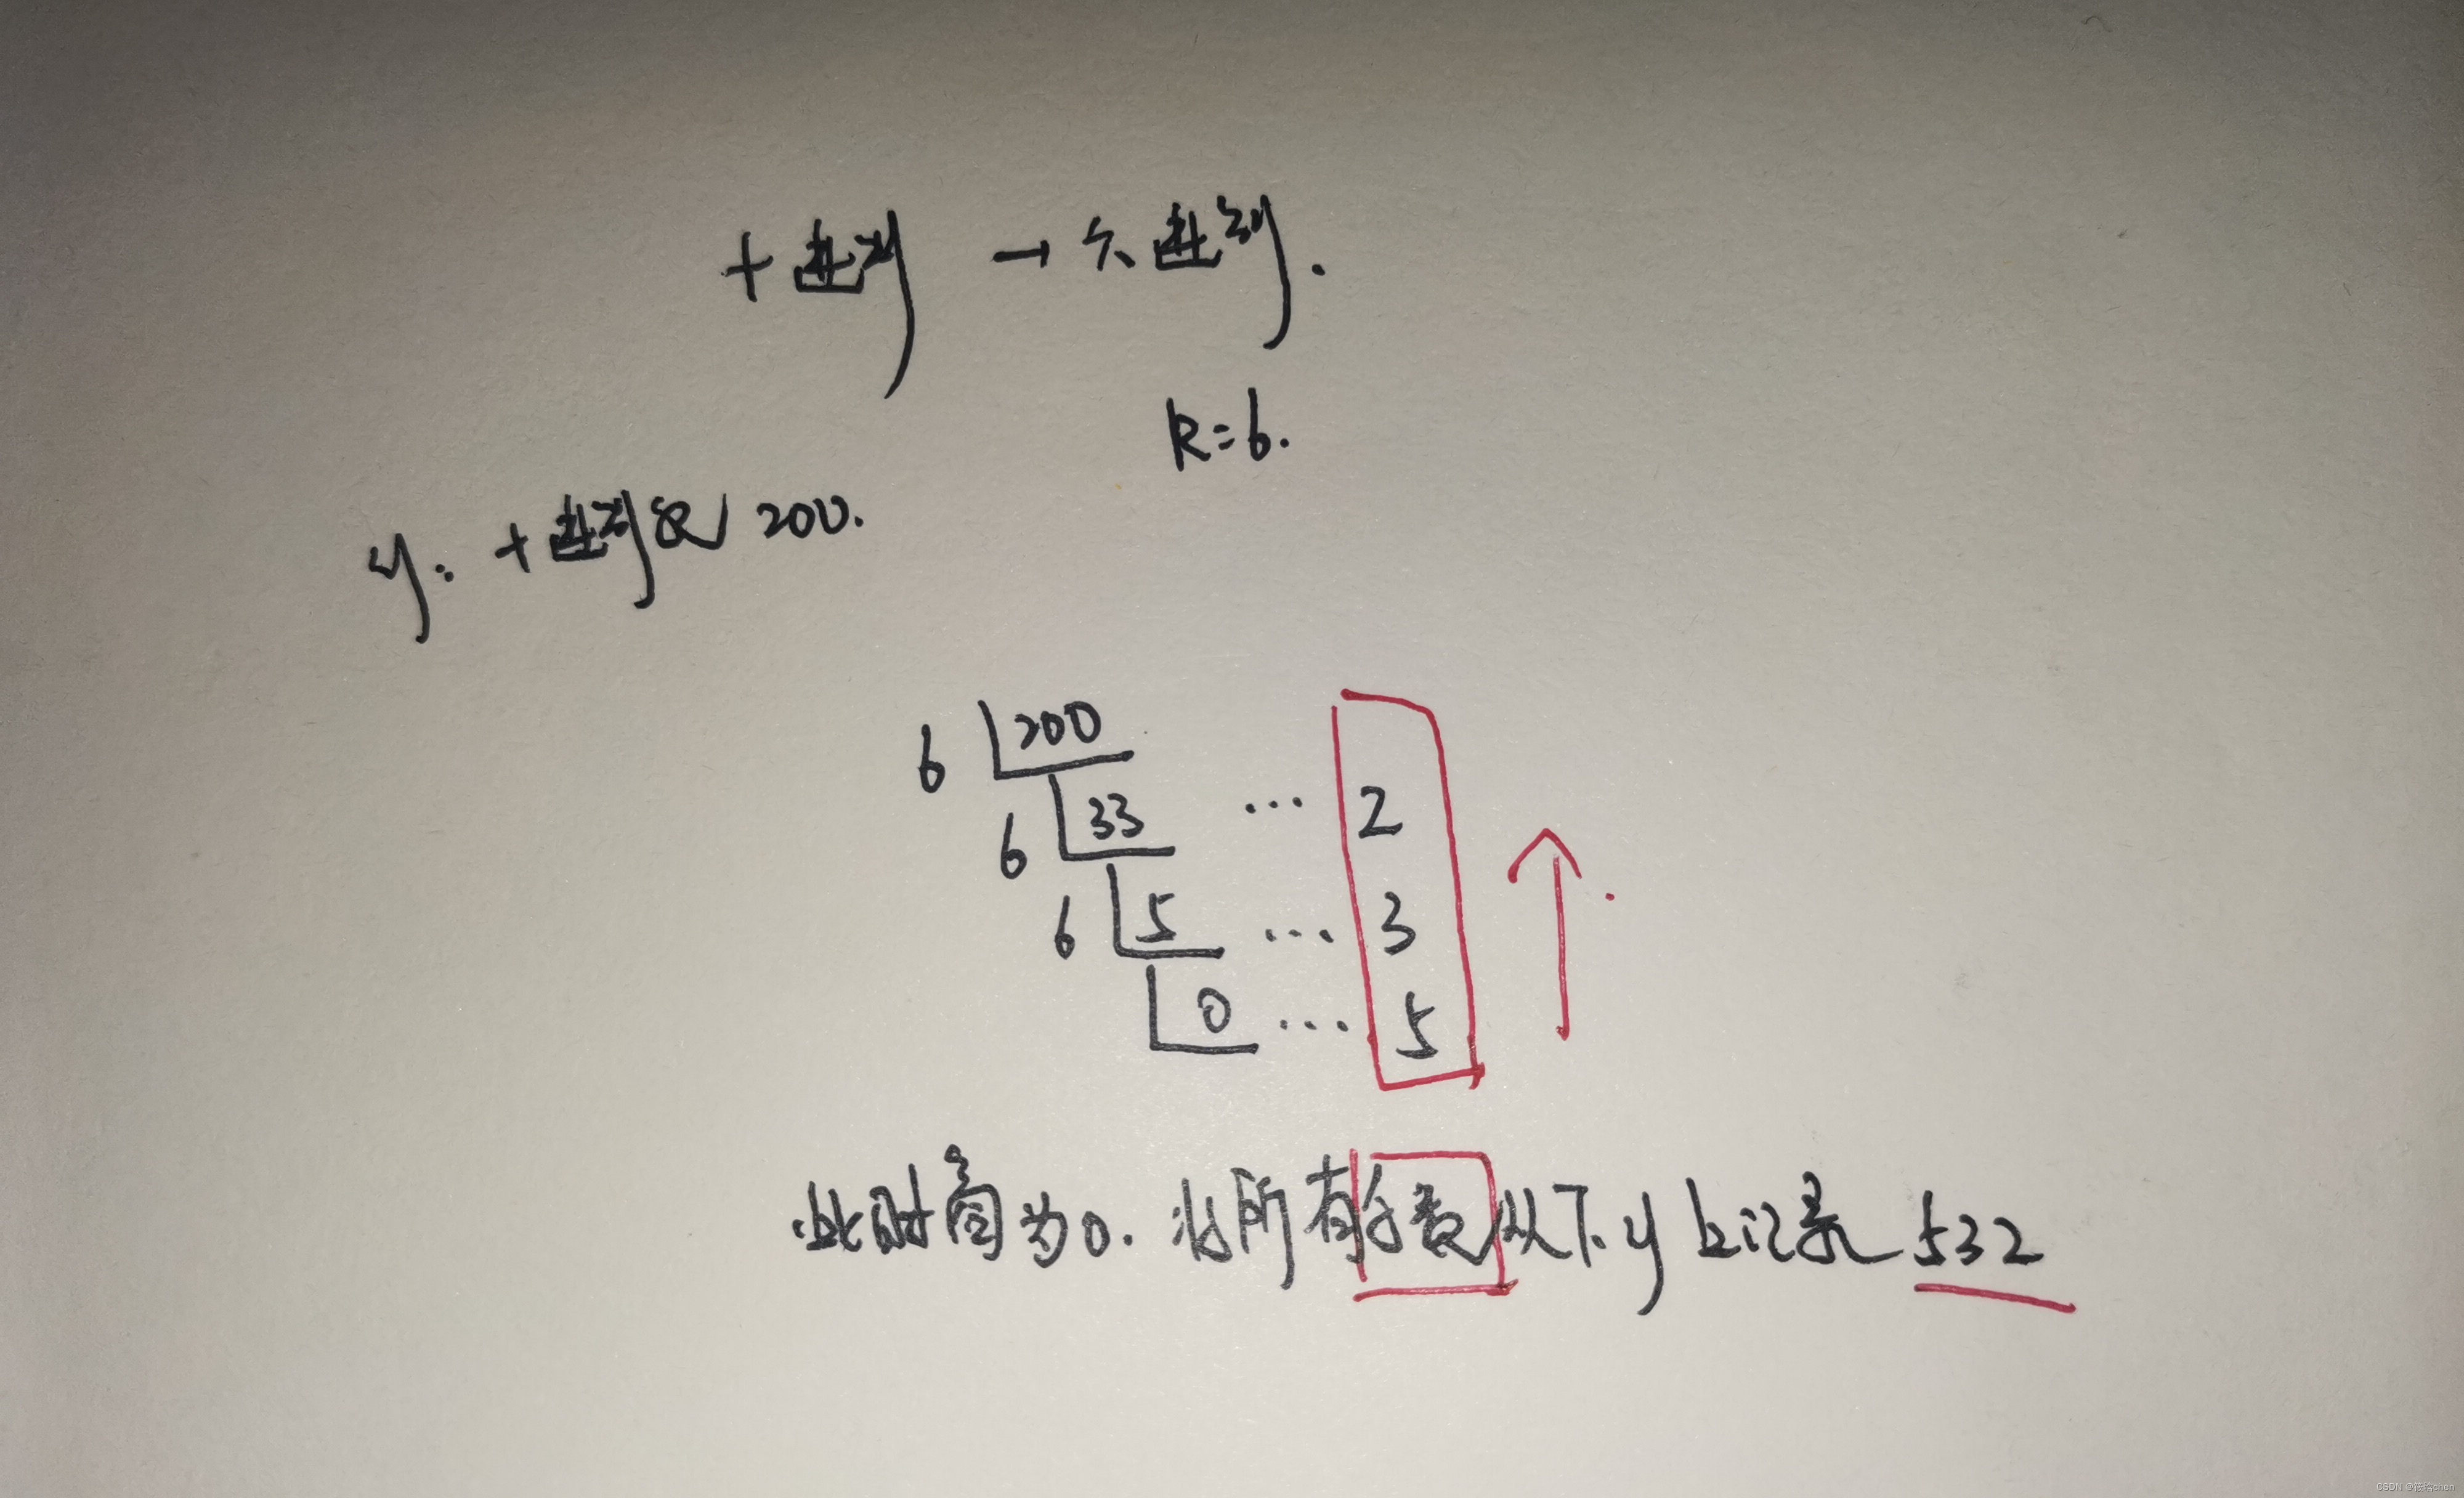 十进制 → 六进制.
R=6.
例: 十进制数 200.
6 200
6 33 ... 2
6 5 ... 3
0 ... 5
此时商为0. 将所有余数从下到上记录 532
CSDN @筱chen